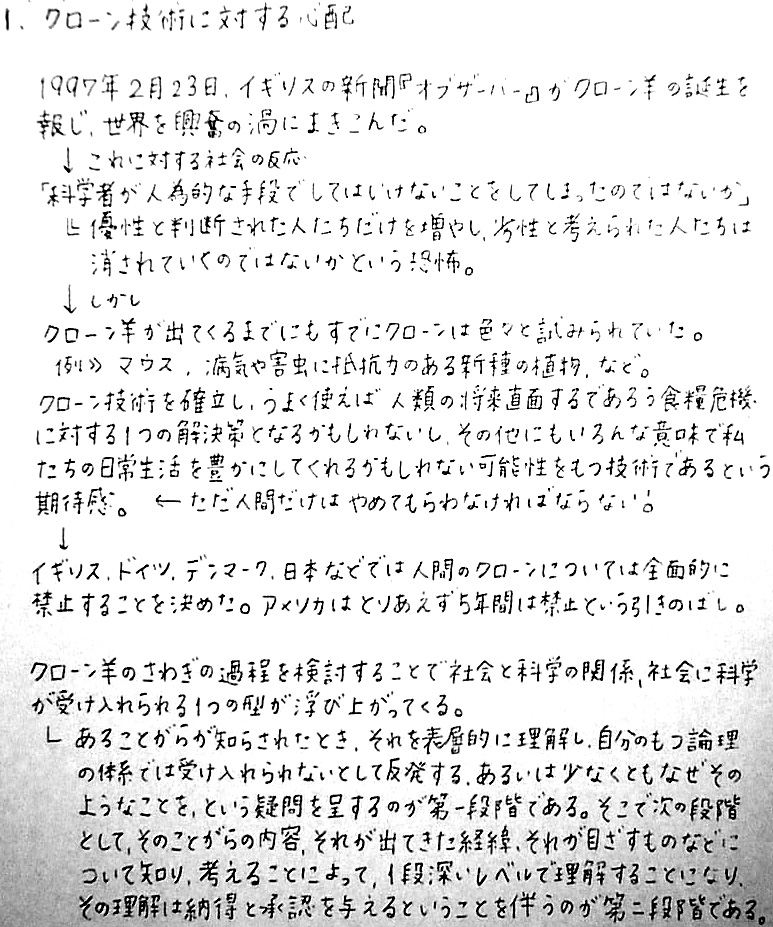 1. クローン技術に対する心配
1997年2月23日, イギリスの新聞『オブザーバー』がクローン羊の誕生を
報じ, 世界を興奮の渦にまきこんだ。
↓ これに対する社会の反応
「科学者が人為的な手段でしてはいけないことをしてしまったのではないか」
┗ 優性と判断された人たちだけを増やし, 劣性と考えられた人たちは
消されていくのではないかという恐怖。
↓ しかし
クローン羊が出てくるまでにもすでにクローンは色々と試みられていた。
例》 マウス, 病気や害虫に抵抗力のある新種の植物, など。
クローン技術を確立し, うまく使えば人類の将来直面するであろう食糧危機
に対する1つの解決策となるかもしれないし, その他にもいろんな意味で私
たちの日常生活を豊かにしてくれるかもしれない可能性をもつ技術であるという
期待感。 ← ただ人間だけはやめてもらわなければならない!。
↓
イギリス, ドイツ, デンマーク, 日本などでは人間のクローンについては全面的に
禁止することを決めた。アメリカはとりあえず5年間は禁止という引きのばし。
クローン羊のさわぎの過程を検討することで社会と科学の関係, 社会に科学
が受け入れられる1つの型が浮び上がってくる。
┗ あることがらが知らされたとき, それを表層的に理解し, 自分のもつ論理
の体系では受け入れられないとして反発する, あるいは少なくともなぜその
ようなことを, という疑問を呈するのが第一段階である。そこで次の段階
として, そのことがらの内容, それが出てきた経緯, それが目ざすものなどに
ついて知り, 考えることによって, 1段深いレベルで理解することになり,
その理解は納得と承認を与えるということを伴うのが第二段階である。